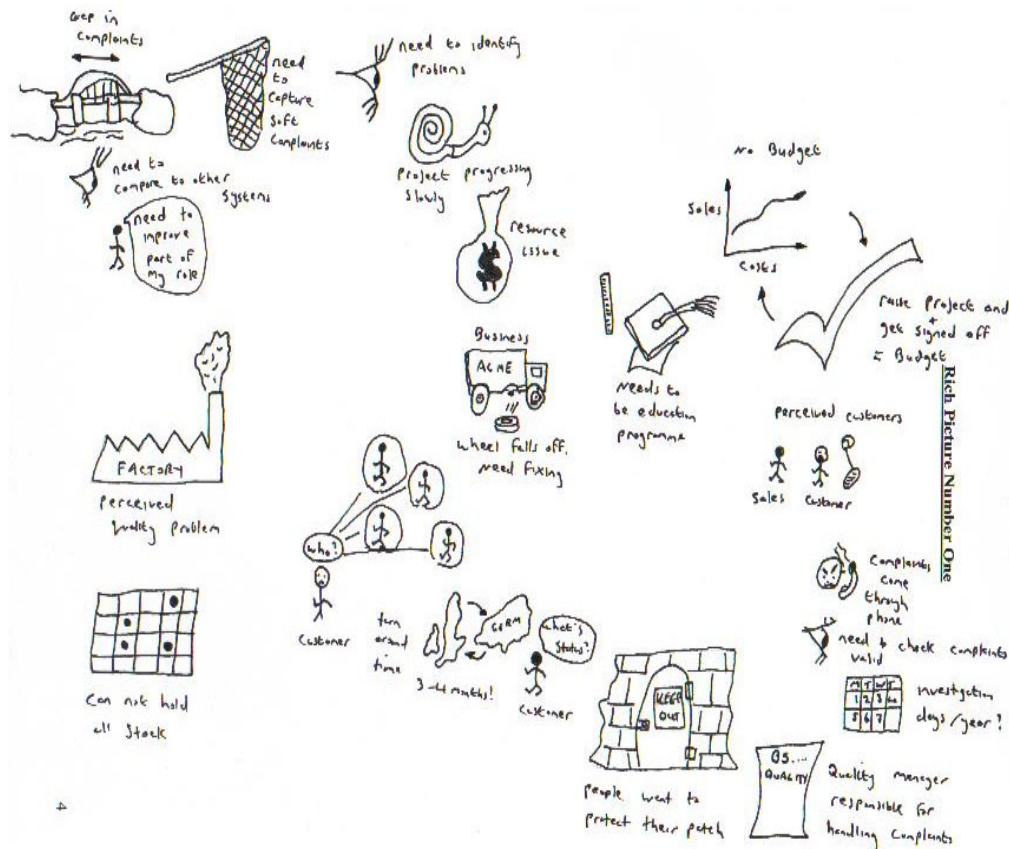 Gap in
Complaints
need
to
capture
soft
complaints
need to identify
problems
need to
compare to other
systems
need to
improve
part of
my role
project progressing
slowly
resource
issue
$
No Budget
Sales
Costs
raise project and
get signed off
+
Budget
needs to
be education
programme
Business
ACME
wheel falls off,
need fixing
FACTORY
perceived
quality problem
perceived customers
Sales
customer
Rich Picture Number One
who?
Customer
turn
around
time
GERM
3-4 months!
What's
status?
Customer
Complaints
come
through
phone
need to check complaints
valid
M T W T
1 2 3 4
5 6 7
investigation
days/year?
Can not hold
all stock
KEEP
OUT
people want to
protect their patch
BS....
QUALITY
Quality manager
responsible for
handling complaints